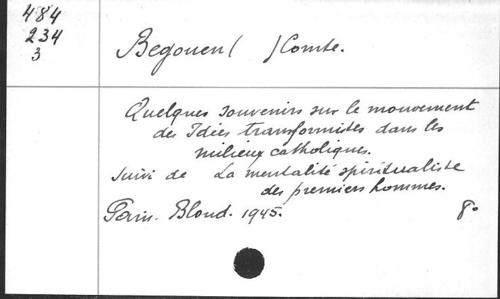 484
234
3
Begouen ( ) Comte.
Quelques souvenirs sur le mouvement
des Idées transformites dans les
milieux catholiques.
suivi de La mentalité spiritualiste
des premiers hommes.
Paris. Bloud. 1945. 8o